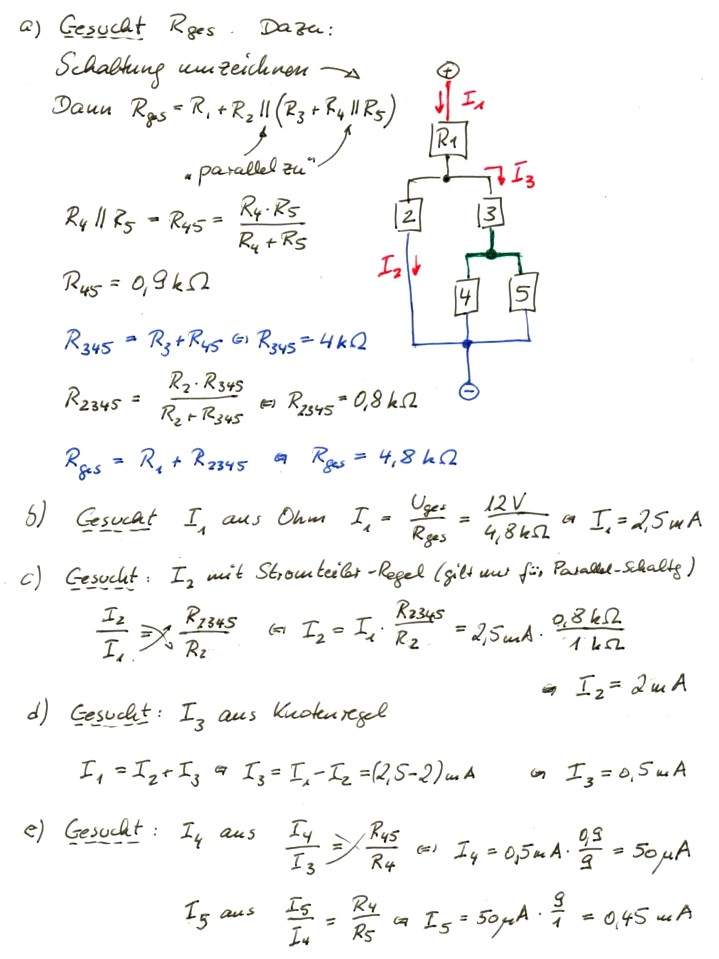 a) Gesucht Rges. Dazu:
Schaltung umzeichnen →
Dann Rges = R1 + R2 || (R3 + R4 || R5)
"parallel zu"
+
I1
R1
I3
2
3
I2
4
5
−
R4 || R5 = R45 = R4·R5 / R4 + R5
R45 = 0,9 kΩ
R345 = R3 + R45 ⇔ R345 = 4 kΩ
R2345 = R2·R345 / R2 + R345 ⇔ R2345 = 0,8 kΩ
Rges = R1 + R2345 ⇔ Rges = 4,8 kΩ
b) Gesucht I1 aus Ohm I1 = Uges / Rges = 12V / 4,8 kΩ ⇔ I1 = 2,5 mA
c) Gesucht: I2 mit Stromteiler-Regel (gilt nur für Parallel-Schaltg)
I2 / I1 = R2345 / R2 ⇔ I2 = I1 · R2345 / R2 = 2,5mA · 0,8 kΩ / 1 kΩ
⇔ I2 = 2 mA
d) Gesucht: I3 aus Knotenregel
I1 = I2 + I3 ⇔ I3 = I1 - I2 = (2,5-2) mA ⇔ I3 = 0,5 mA
e) Gesucht: I4 aus I4 / I3 = R45 / R4 ⇔ I4 = 0,5mA · 0,9 / 9 = 50 µA
I5 aus I5 / I4 = R4 / R5 ⇔ I5 = 50µA · 9 / 1 = 0,45 mA